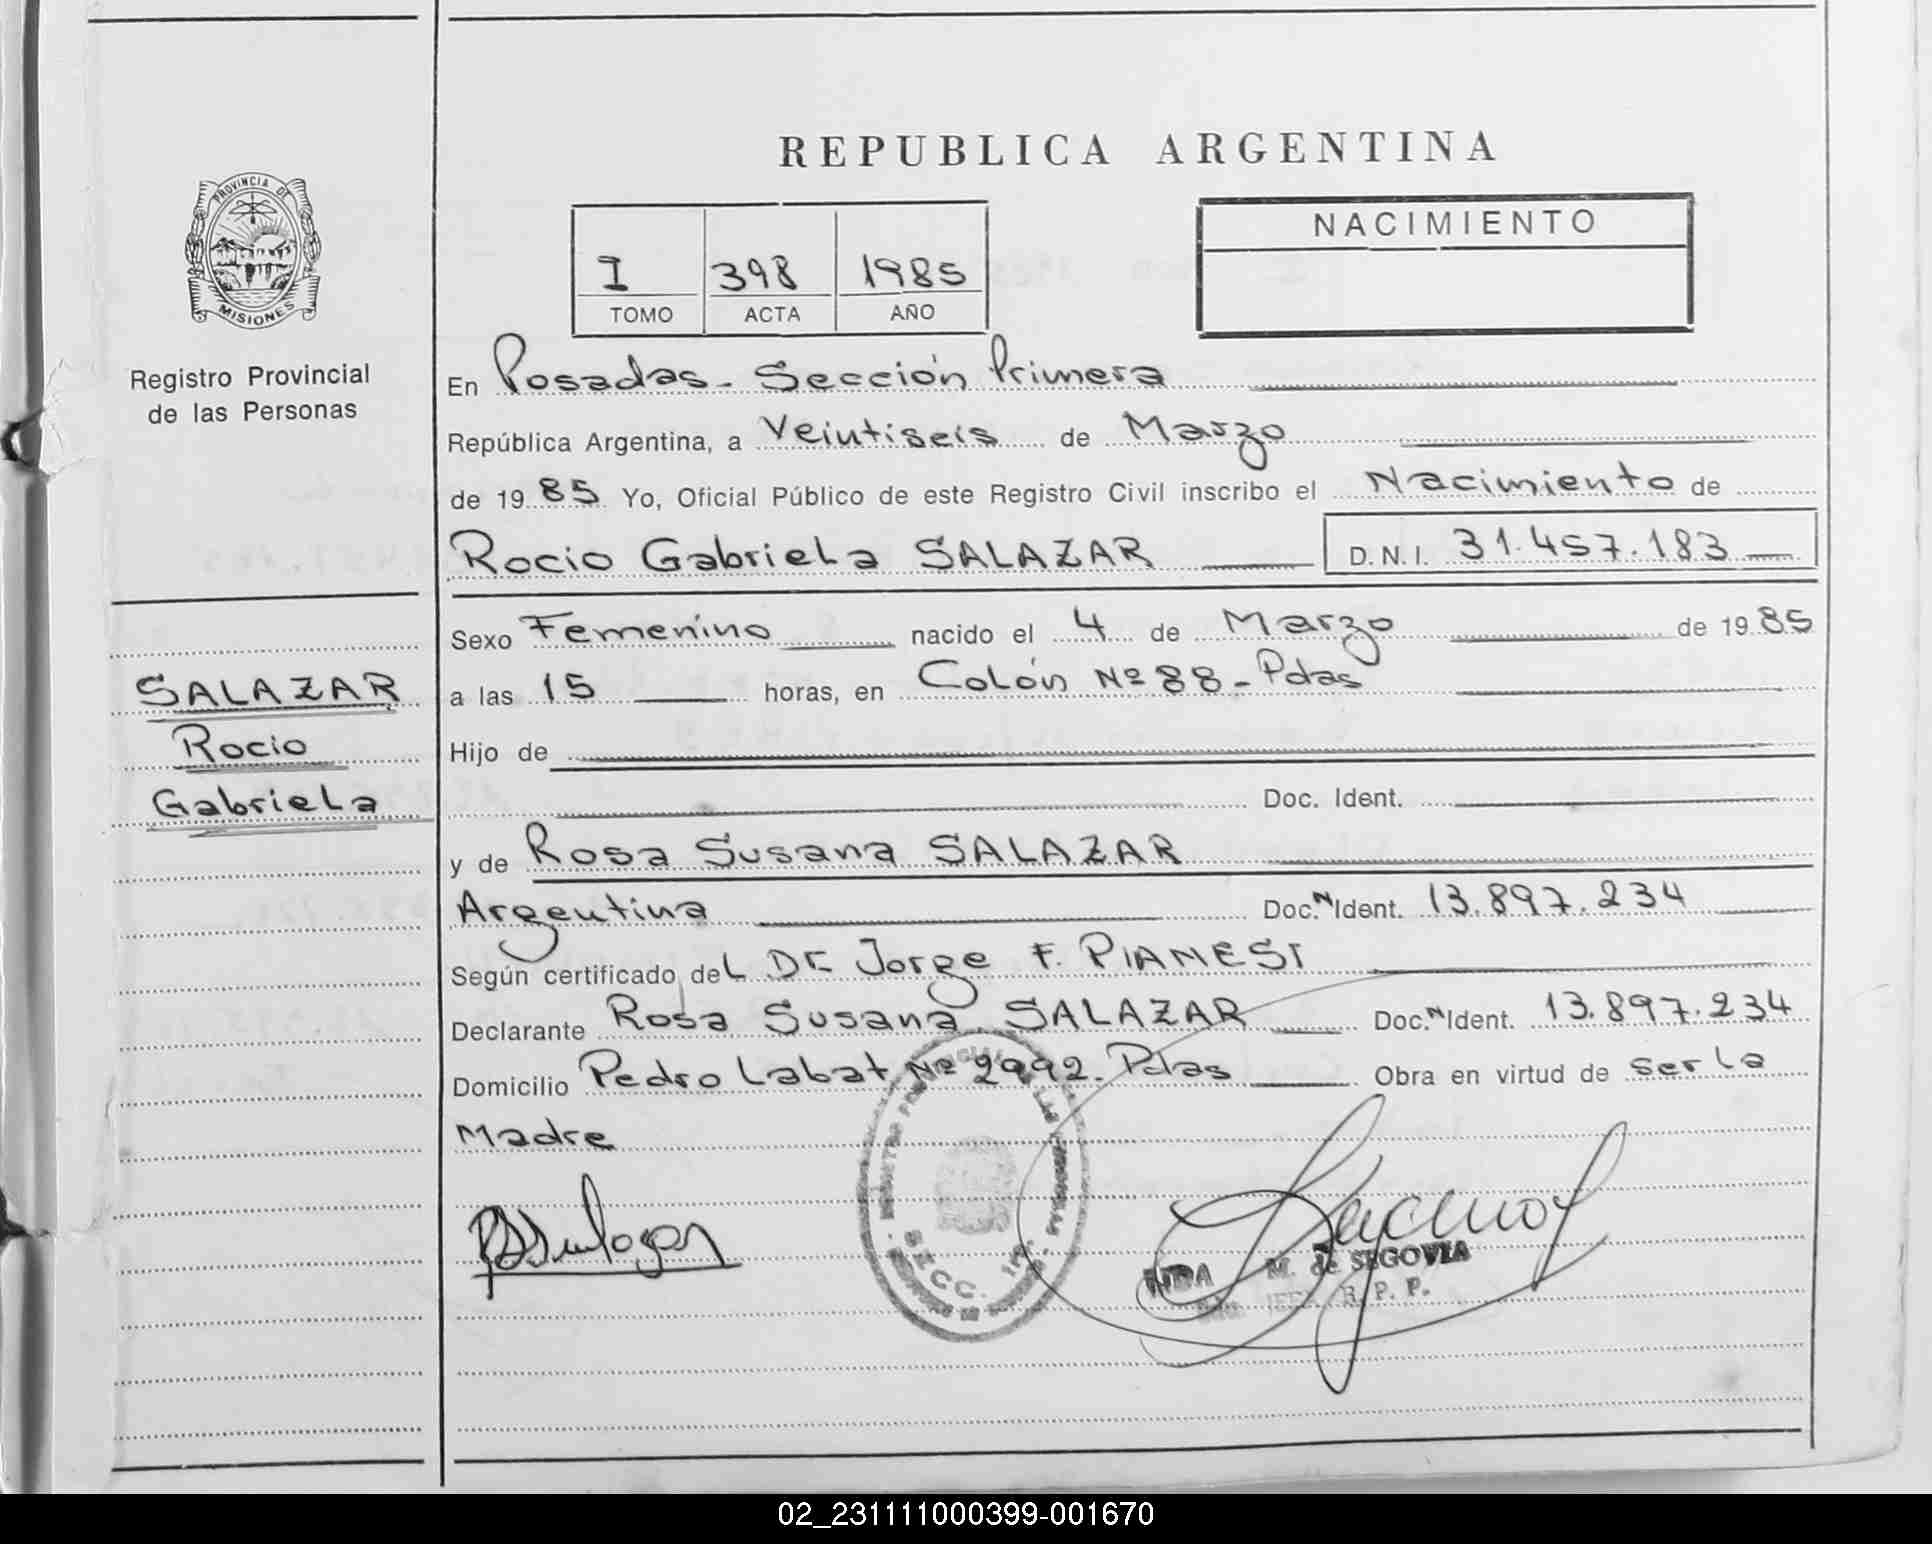 REPUBLICA ARGENTINA
PROVINCIA DE
MISIONES
Registro Provincial
de las Personas
I 398 1985
TOMO ACTA AÑO
NACIMIENTO
En Posadas - Sección Primera
República Argentina, a Veintiseis de Marzo
de 1985 Yo, Oficial Público de este Registro Civil inscribo el Nacimiento de
Rocio Gabriela SALAZAR D.N.I. 31.457.183
Sexo Femenino nacido el 4 de Marzo de 1985
a las 15 horas, en Colón Nº 88 - Pdas
Hijo de
Doc. Ident.
y de Rosa Susana SALAZAR
Argentina Doc.N Ident. 13.897.234
Según certificado del Dr Jorge F. PIANESI
Declarante Rosa Susana SALAZAR Doc.N Ident. 13.897.234
Domicilio Pedro Labat Nº 2992. Pdas Obra en virtud de ser la
Madre
SALAZAR
Rocio
Gabriela
SECC. 1ra.
M. de SEGOVIA
R. P. P.
02_231111000399-001670